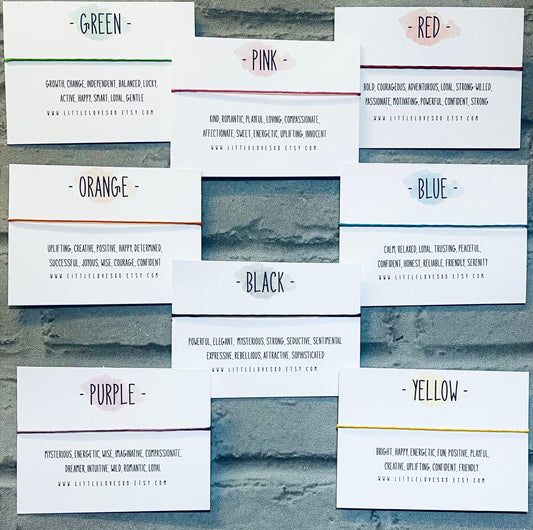 - GREEN -
GROWTH, CHANGE, INDEPENDENT, BALANCED, LUCKY,
ACTIVE, HAPPY, SMART, LOYAL, GENTLE
WWW.LITTLELOVESXO.ETSY.COM
- PINK -
KIND, ROMANTIC, PLAYFUL, LOVING, COMPASSIONATE,
AFFECTIONATE, SWEET, ENERGETIC, UPLIFTING, INNOCENT
WWW.LITTLELOVESXO.ETSY.COM
- RED -
BOLD, COURAGEOUS, ADVENTUROUS, LOYAL, STRONG-WILLED,
PASSIONATE, MOTIVATING, POWERFUL, CONFIDENT, STRONG
WWW.LITTLELOVESXO.ETSY.COM
- ORANGE -
UPLIFTING, CREATIVE, POSITIVE, HAPPY, DETERMINED,
SUCCESSFUL, JOYOUS, WISE, COURAGE, CONFIDENT
WWW.LITTLELOVESXO.ETSY.COM
- BLUE -
CALM, RELAXED, LOYAL, TRUSTING, PEACEFUL,
CONFIDENT, HONEST, RELIABLE, FRIENDLY, SERENITY
WWW.LITTLELOVESXO.ETSY.COM
- BLACK -
POWERFUL, ELEGANT, MYSTERIOUS, STRONG, SEDUCTIVE, SENTIMENTAL
EXPRESSIVE, REBELLIOUS, ATTRACTIVE, SOPHISTICATED
WWW.LITTLELOVESXO.ETSY.COM
- PURPLE -
MYSTERIOUS, ENERGETIC, WISE, IMAGINATIVE, COMPASSIONATE,
DREAMER, INTUITIVE, WILD, ROMANTIC, LOYAL
WWW.LITTLELOVESXO.ETSY.COM
- YELLOW -
BRIGHT, HAPPY, ENERGETIC, FUN, POSITIVE, PLAYFUL,
CREATIVE, UPLIFTING, CONFIDENT, FRIENDLY
WWW.LITTLELOVESXO.ETSY.COM